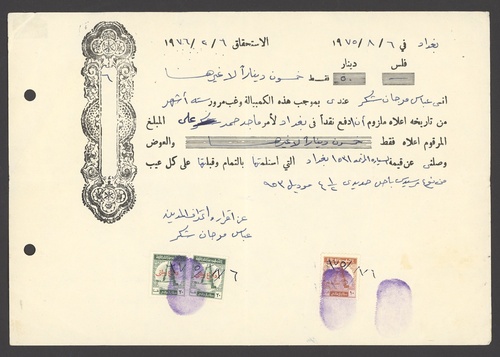 بغداد في ٦ / ٨ / ١٩٧٥ الاستحقاق ٦ / ٢ / ١٩٧٦
فلس دينار
— ٥٠ فقط خمسون ديناراً لا غيرها
اني عباس مرجان شكر عندي بموجب هذه الكمبيالة وغب مرور ستة أشهر
من تاريخه اعلاه ملزوم أن ادفع نقداً في بغداد لأمر ماجد حميد علي المبلغ
المرقوم اعلاه فقط خمسون ديناراً لا غيرها والعوض
وصلني عن قيمة سيارة المرقمة بغداد التي استلمتها بالتمام وقبلتها على كل عيب
موديل ٩٥٣
عن اقرار واعتراف المدين
عباس مرجان شكر